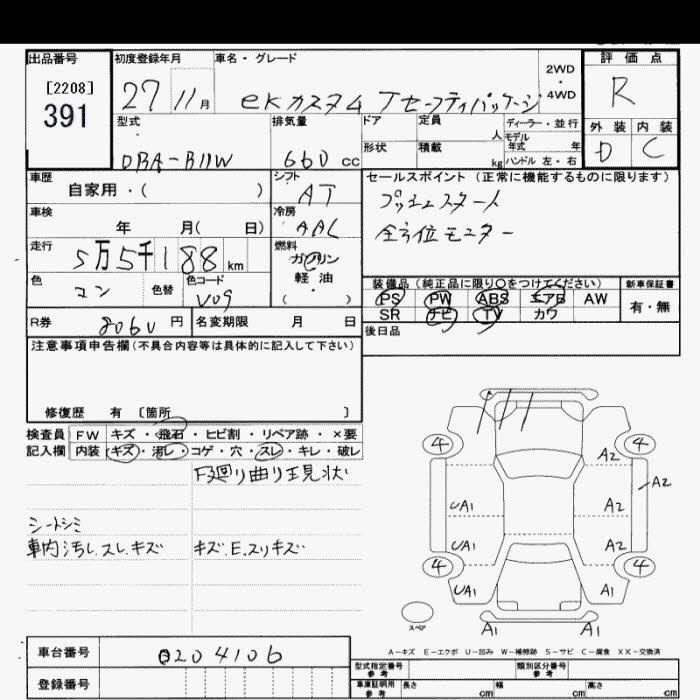 出品番号
[2208]
391
初度登録年月
27 11月
車名・グレード
ekカスタム Tセーフティパッケージ
2WD
・
4WD
評価点
R
外装 内装
D C
型式
DBA-B11W
排気量
660 cc
ドア
定員
人
形状
積載
kg
ディーラー・並行
モデル
年式 年
ハンドル 左・右
車歴
自家用・( )
シフト
AT
セールスポイント (正常に機能するものに限ります)
プッシュスタート
全方位モニター
車検
年 月( 日)
冷房
AAC
走行
5万5千188km
燃料
ガソリン
軽油
( ・ )
色
コン
色替
色コード
V09
装備品 (純正品に限り○をつけてください)
新車保証書
PS PW ABS エアB AW
SR ナビ TV カワ
有・無
R券
8060円
名変期限 月 日
後日品
注意事項申告欄(不具合内容等は具体的に記入して下さい)
修復歴 有 〔箇所 〕
検査員
記入欄
FW キズ・飛石・ヒビ割・リペア跡・×要
内装 キズ・汚レ・コゲ・穴・スレ・キレ・破レ
下廻り曲り現状
シートシミ
車内汚し.スレ.キズ
キズ.E.スリキズ
4 4
A2
A2
UA1 A2
UA1 A2
4 4
UA1 A1
A1 A1
スペア
A-キズ E-エクボ U-凹み W-補修跡 S-サビ C-腐食 XX-交換済
車台番号
0204106
登録番号
型式指定番号
参考
類別区分番号
参考
車庫証明用
参考
長さ cm
幅 cm
高さ cm